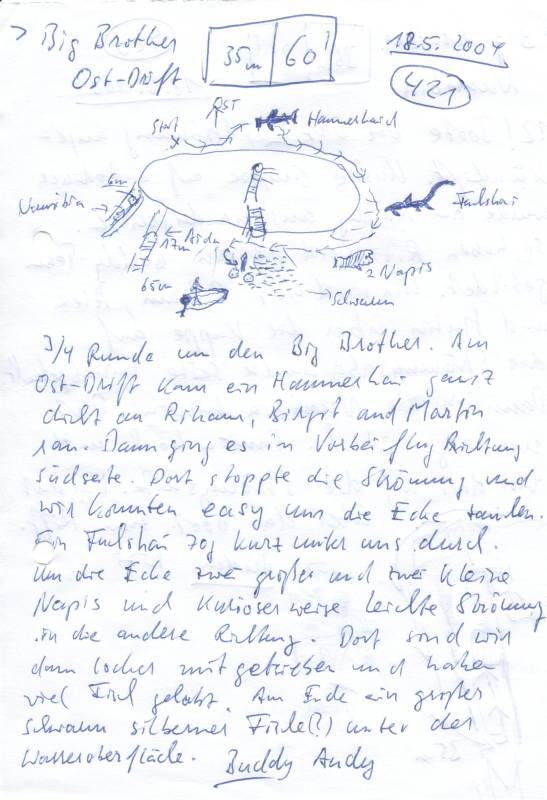 > Big Brother
Ost-Drift
35m 60'
18.5.2004
421
OST
Start
Hammerhaid
6m
Numibia
Fuchshai
Aida
17m
65m
2 Napis
Schwarm
3/4 Runde um den Big Brother. Am
Ost-Drift kam ein Hammerhai ganz
dicht an Rihann, Birgit and Martin
ran. Dann ging es im Vorbeiflug Richtung
Südseite. Dort stoppte die Strömung und
wir konnten easy um die Ecke tauchen.
Ein Fuchshai zog kurz unter uns durch.
Um die Ecke zwei großer und zwei kleine
Napis und kurioser weise leichte Strömung
in die andere Richtung. Dort sind wir
dann locker mitgetrieben und haben
viel Fisch gehabt. Am Ende ein großer
Schwarm silberner Fische(?) unter der
Wasseroberfläche. Buddy Andy